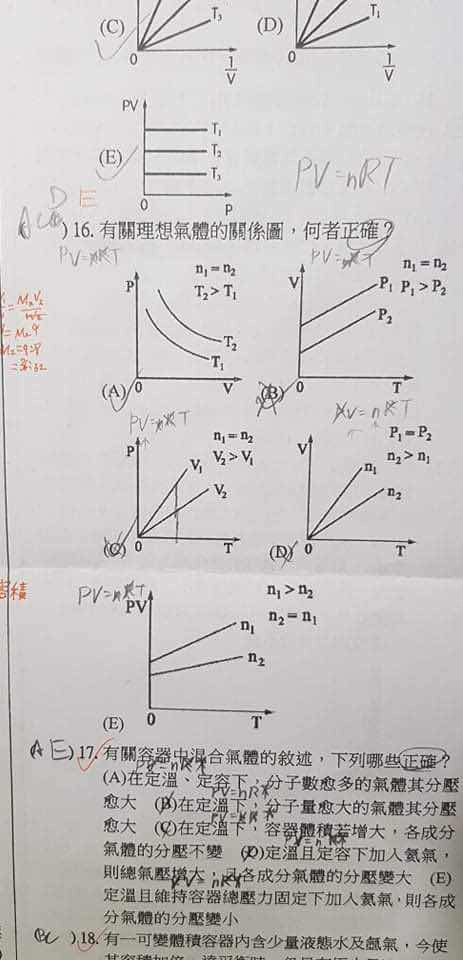 (C) T₃ (D) T₁
0 1/V 0 1/V
PV
T₁
T₂
(E) T₃
0 P
PV=nRT
D E
16. 有關理想氣體的關係圖，何者正確？
PV=nRT PV=nRT
P n₁=n₂ V n₁=n₂
T₂>T₁ P₁ P₁>P₂
T₂ P₂
T₁
(A) 0 V (B) 0 T
PV=nRT PV=nRT
P n₁=n₂ V P₁=P₂
V₁ V₂>V₁ n₁ n₂>n₁
V₂ n₂
(C) 0 T (D) 0 T
PV=nRT
PV n₁>n₂
n₁ n₂=n₁
n₂
(E) 0 T
(AE) 17. 有關容器中混合氣體的敘述，下列哪些正確？
PV=nRT
(A)在定溫、定容下，分子數愈多的氣體其分壓
PV=nRT
愈大 (B)在定溫下，分子量愈大的氣體其分壓
PV=nRT
愈大 (C)在定溫下，容器體積若增大，各成分
PV=nRT
氣體的分壓不變 (D)定溫且定容下加入氦氣，
則總氣壓增大，且各成分氣體的分壓變大 (E)
PV=nRT
定溫且維持容器總壓力固定下加入氦氣，則各成
分氣體的分壓變小
18. 有一可變體積容器內含少量液態水及氬氣，今使